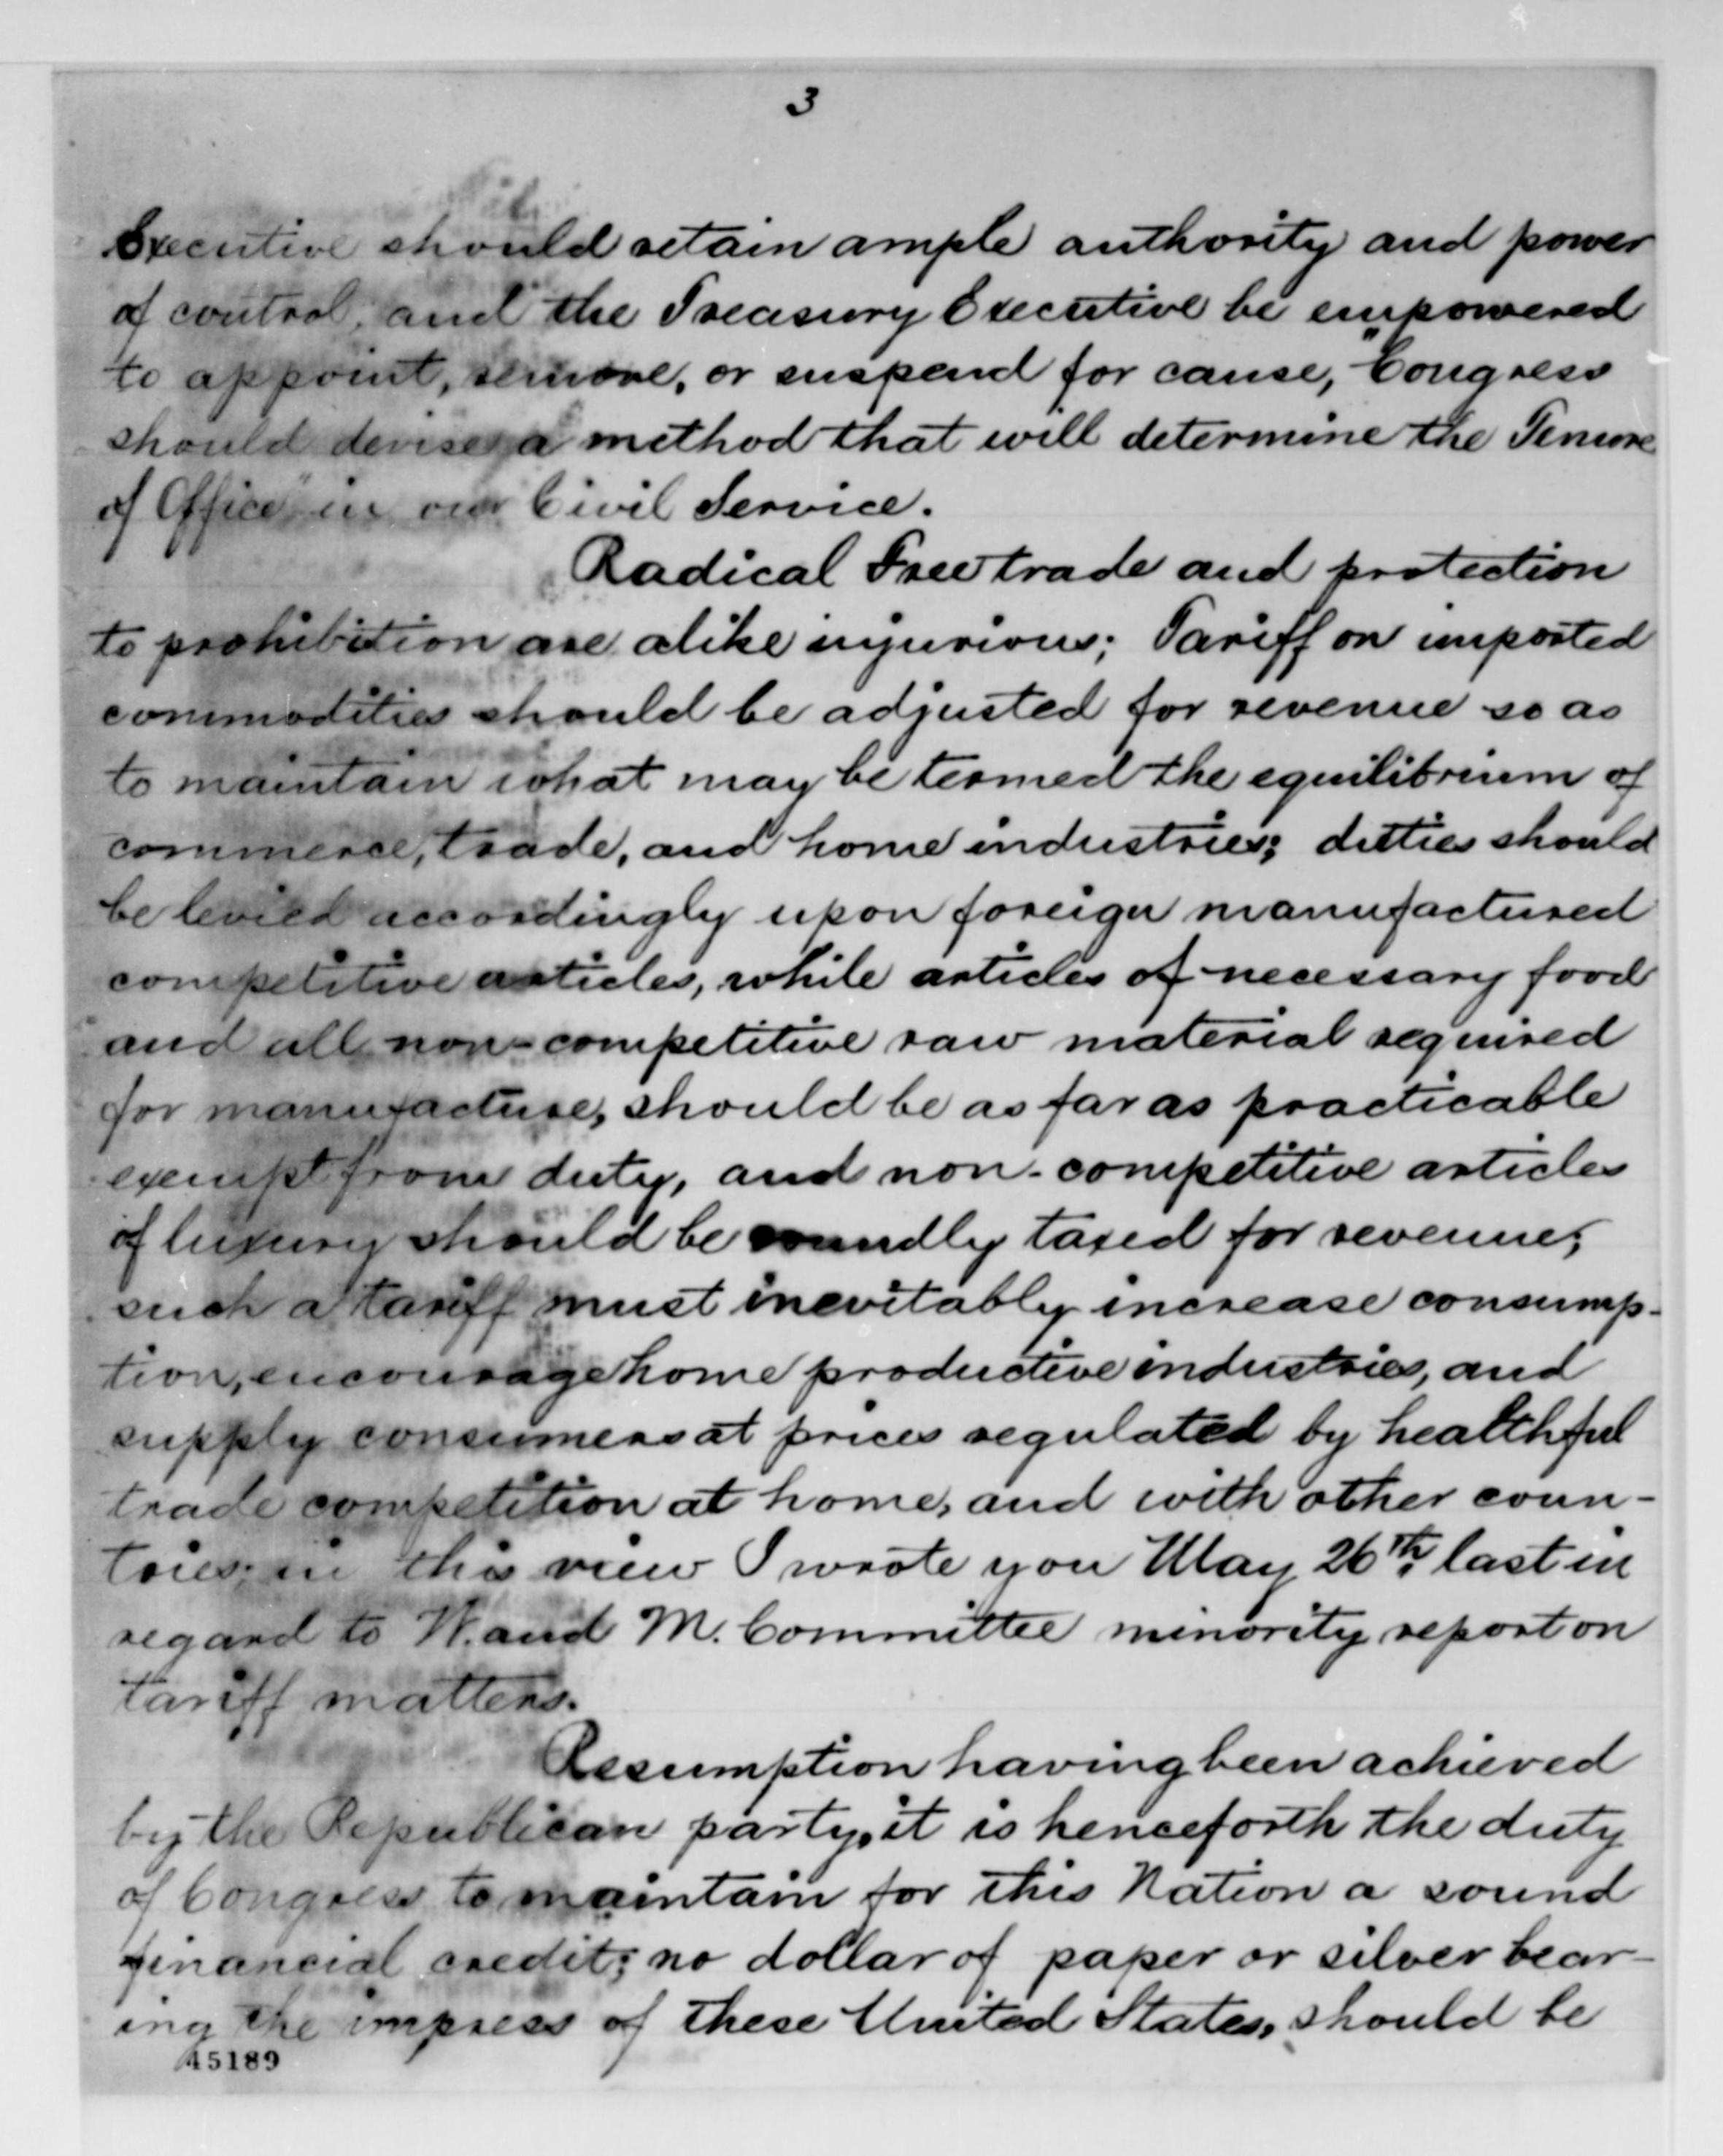 3
Executive should retain ample authority and power
of control, and the Treasury Executive be empowered
to appoint, remove, or suspend for cause, Congress
should devise a method that will determine the "Tenure
of Office" in our Civil Service.
Radical Free trade and protection
to prohibition are alike injurious; Tariff on imported
commodities should be adjusted for revenue so as
to maintain what may be termed the equilibrium of
commerce, trade, and home industries; duties should
be levied accordingly upon foreign manufactured
competitive articles, while articles of necessary food
and all non-competitive raw material required
for manufacture, should be as far as practicable
exempt from duty, and non-competitive articles
of luxury should be roundly taxed for revenue;
such a tariff must inevitably increase consump-
tion, encourage home productive industries, and
supply consumers at prices regulated by healthful
trade competition at home, and with other coun-
tries; in this view I wrote you May 26th. last in
regard to W. and M. Committee minority report on
tariff matters.
Resumption having been achieved
by the Republican party, it is henceforth the duty
of Congress to maintain for this Nation a sound
financial credit; no dollar of paper or silver bear-
ing the impress of these United States, should be
45189